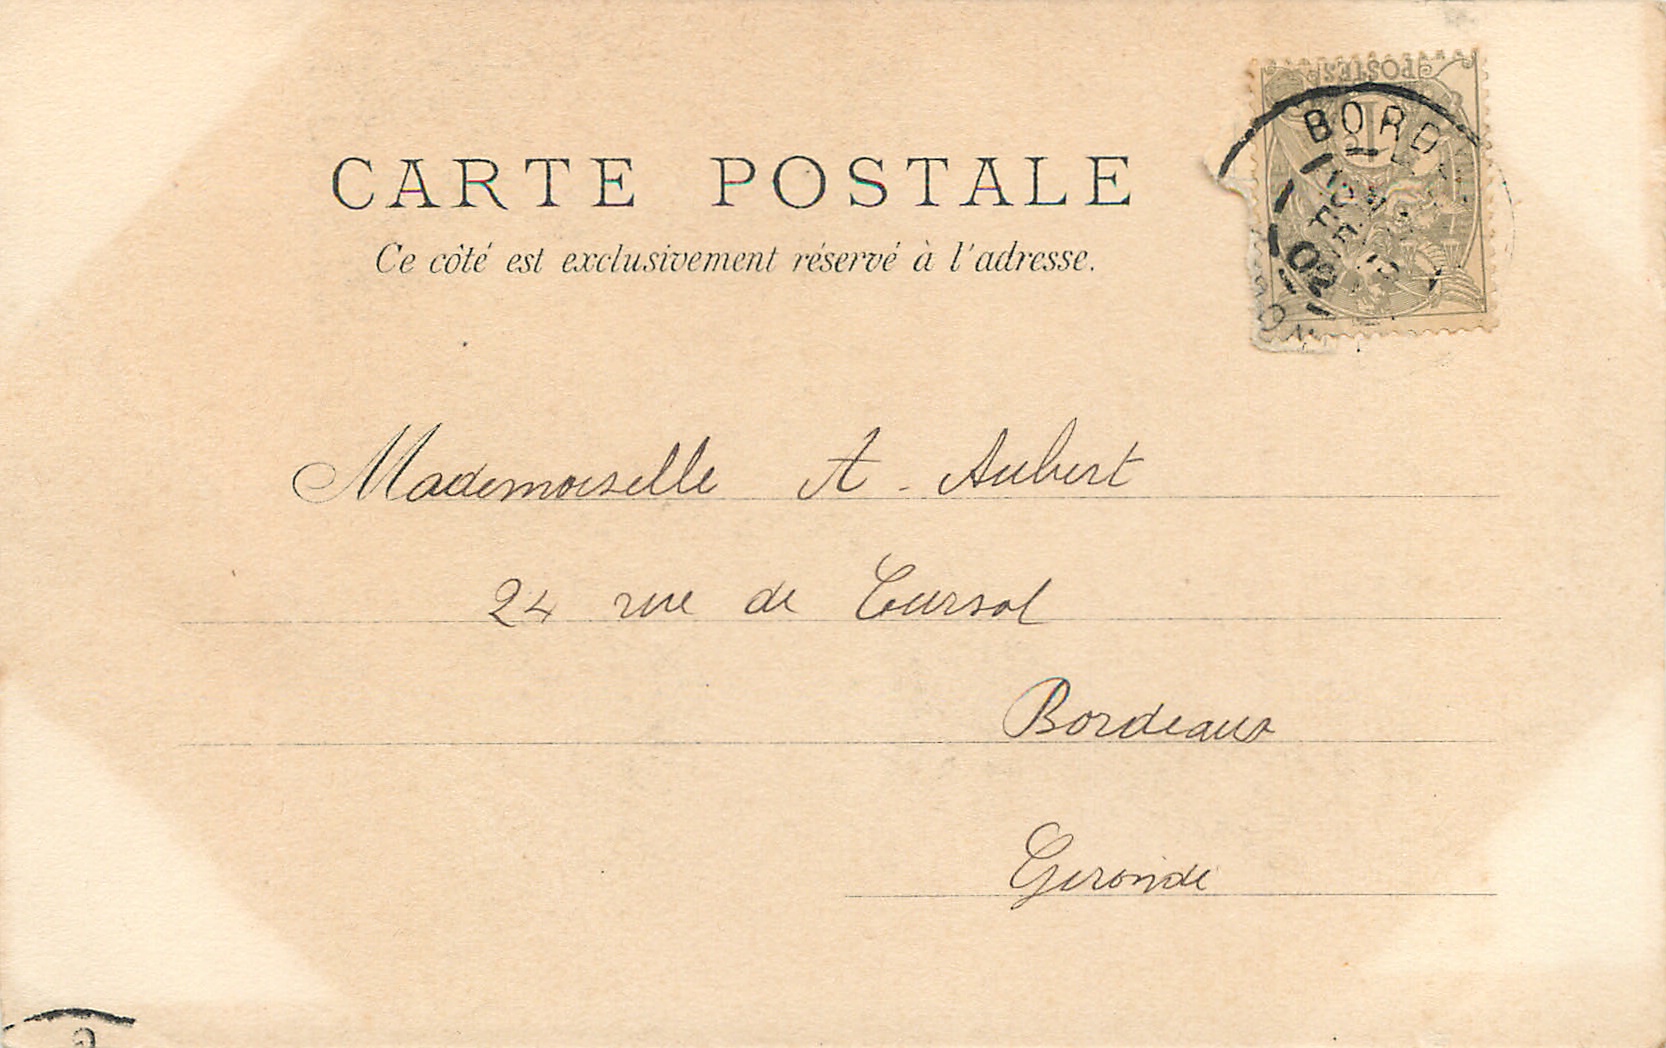 CARTE POSTALE
Ce côté est exclusivement réservé à l'adresse.
POSTES
BORD
02
Mademoiselle A. Aubert
24 rue de Cursol
Bordeaux
Gironde